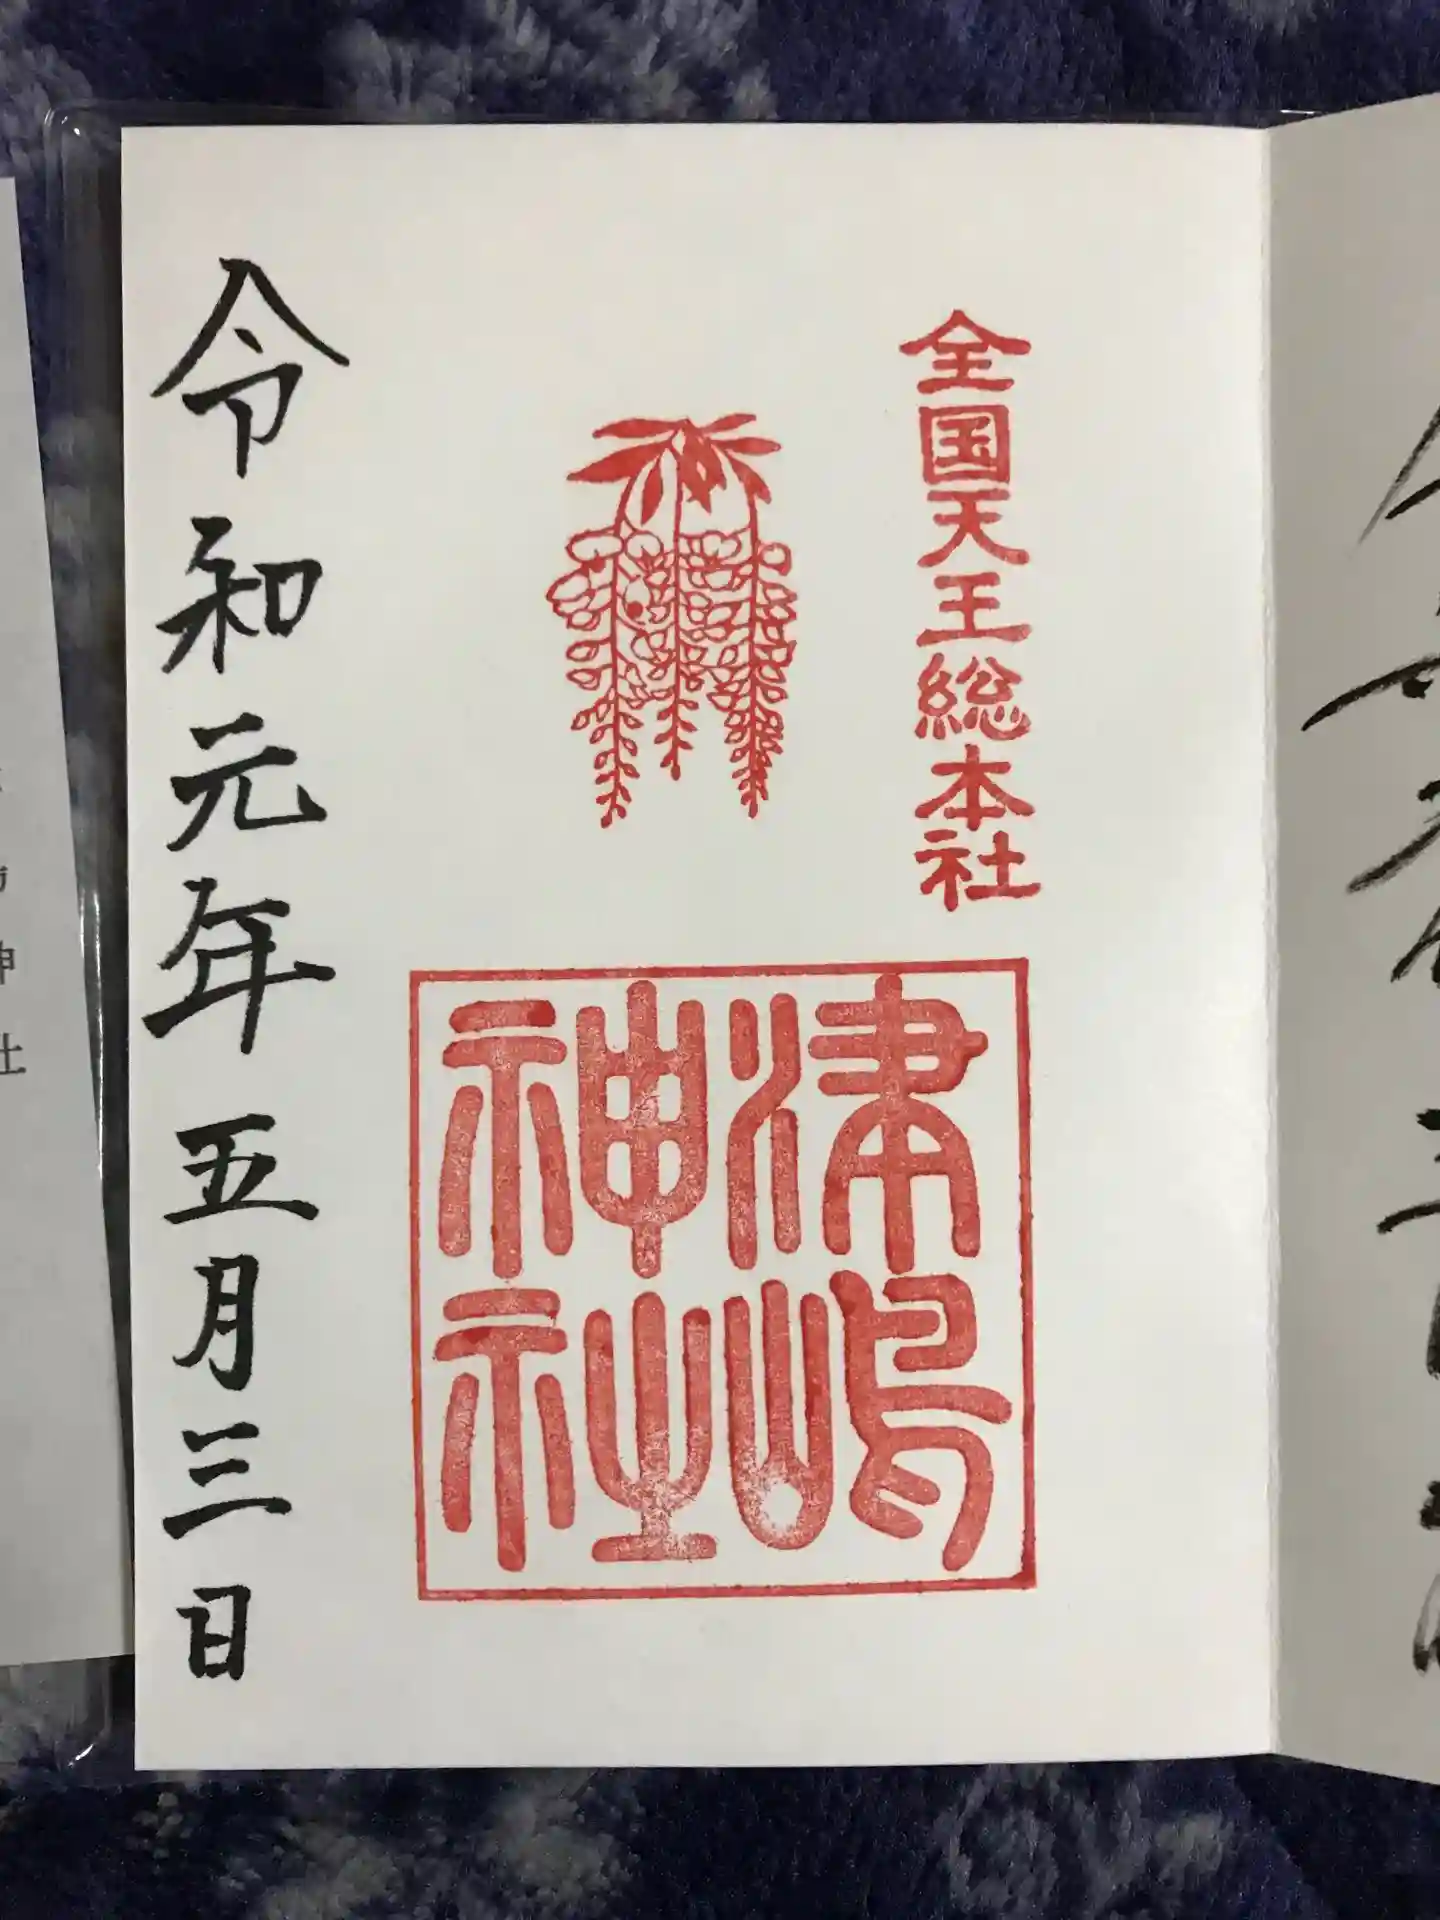 全国天王総本社
津嶋神社
令和元年五月三日
神社